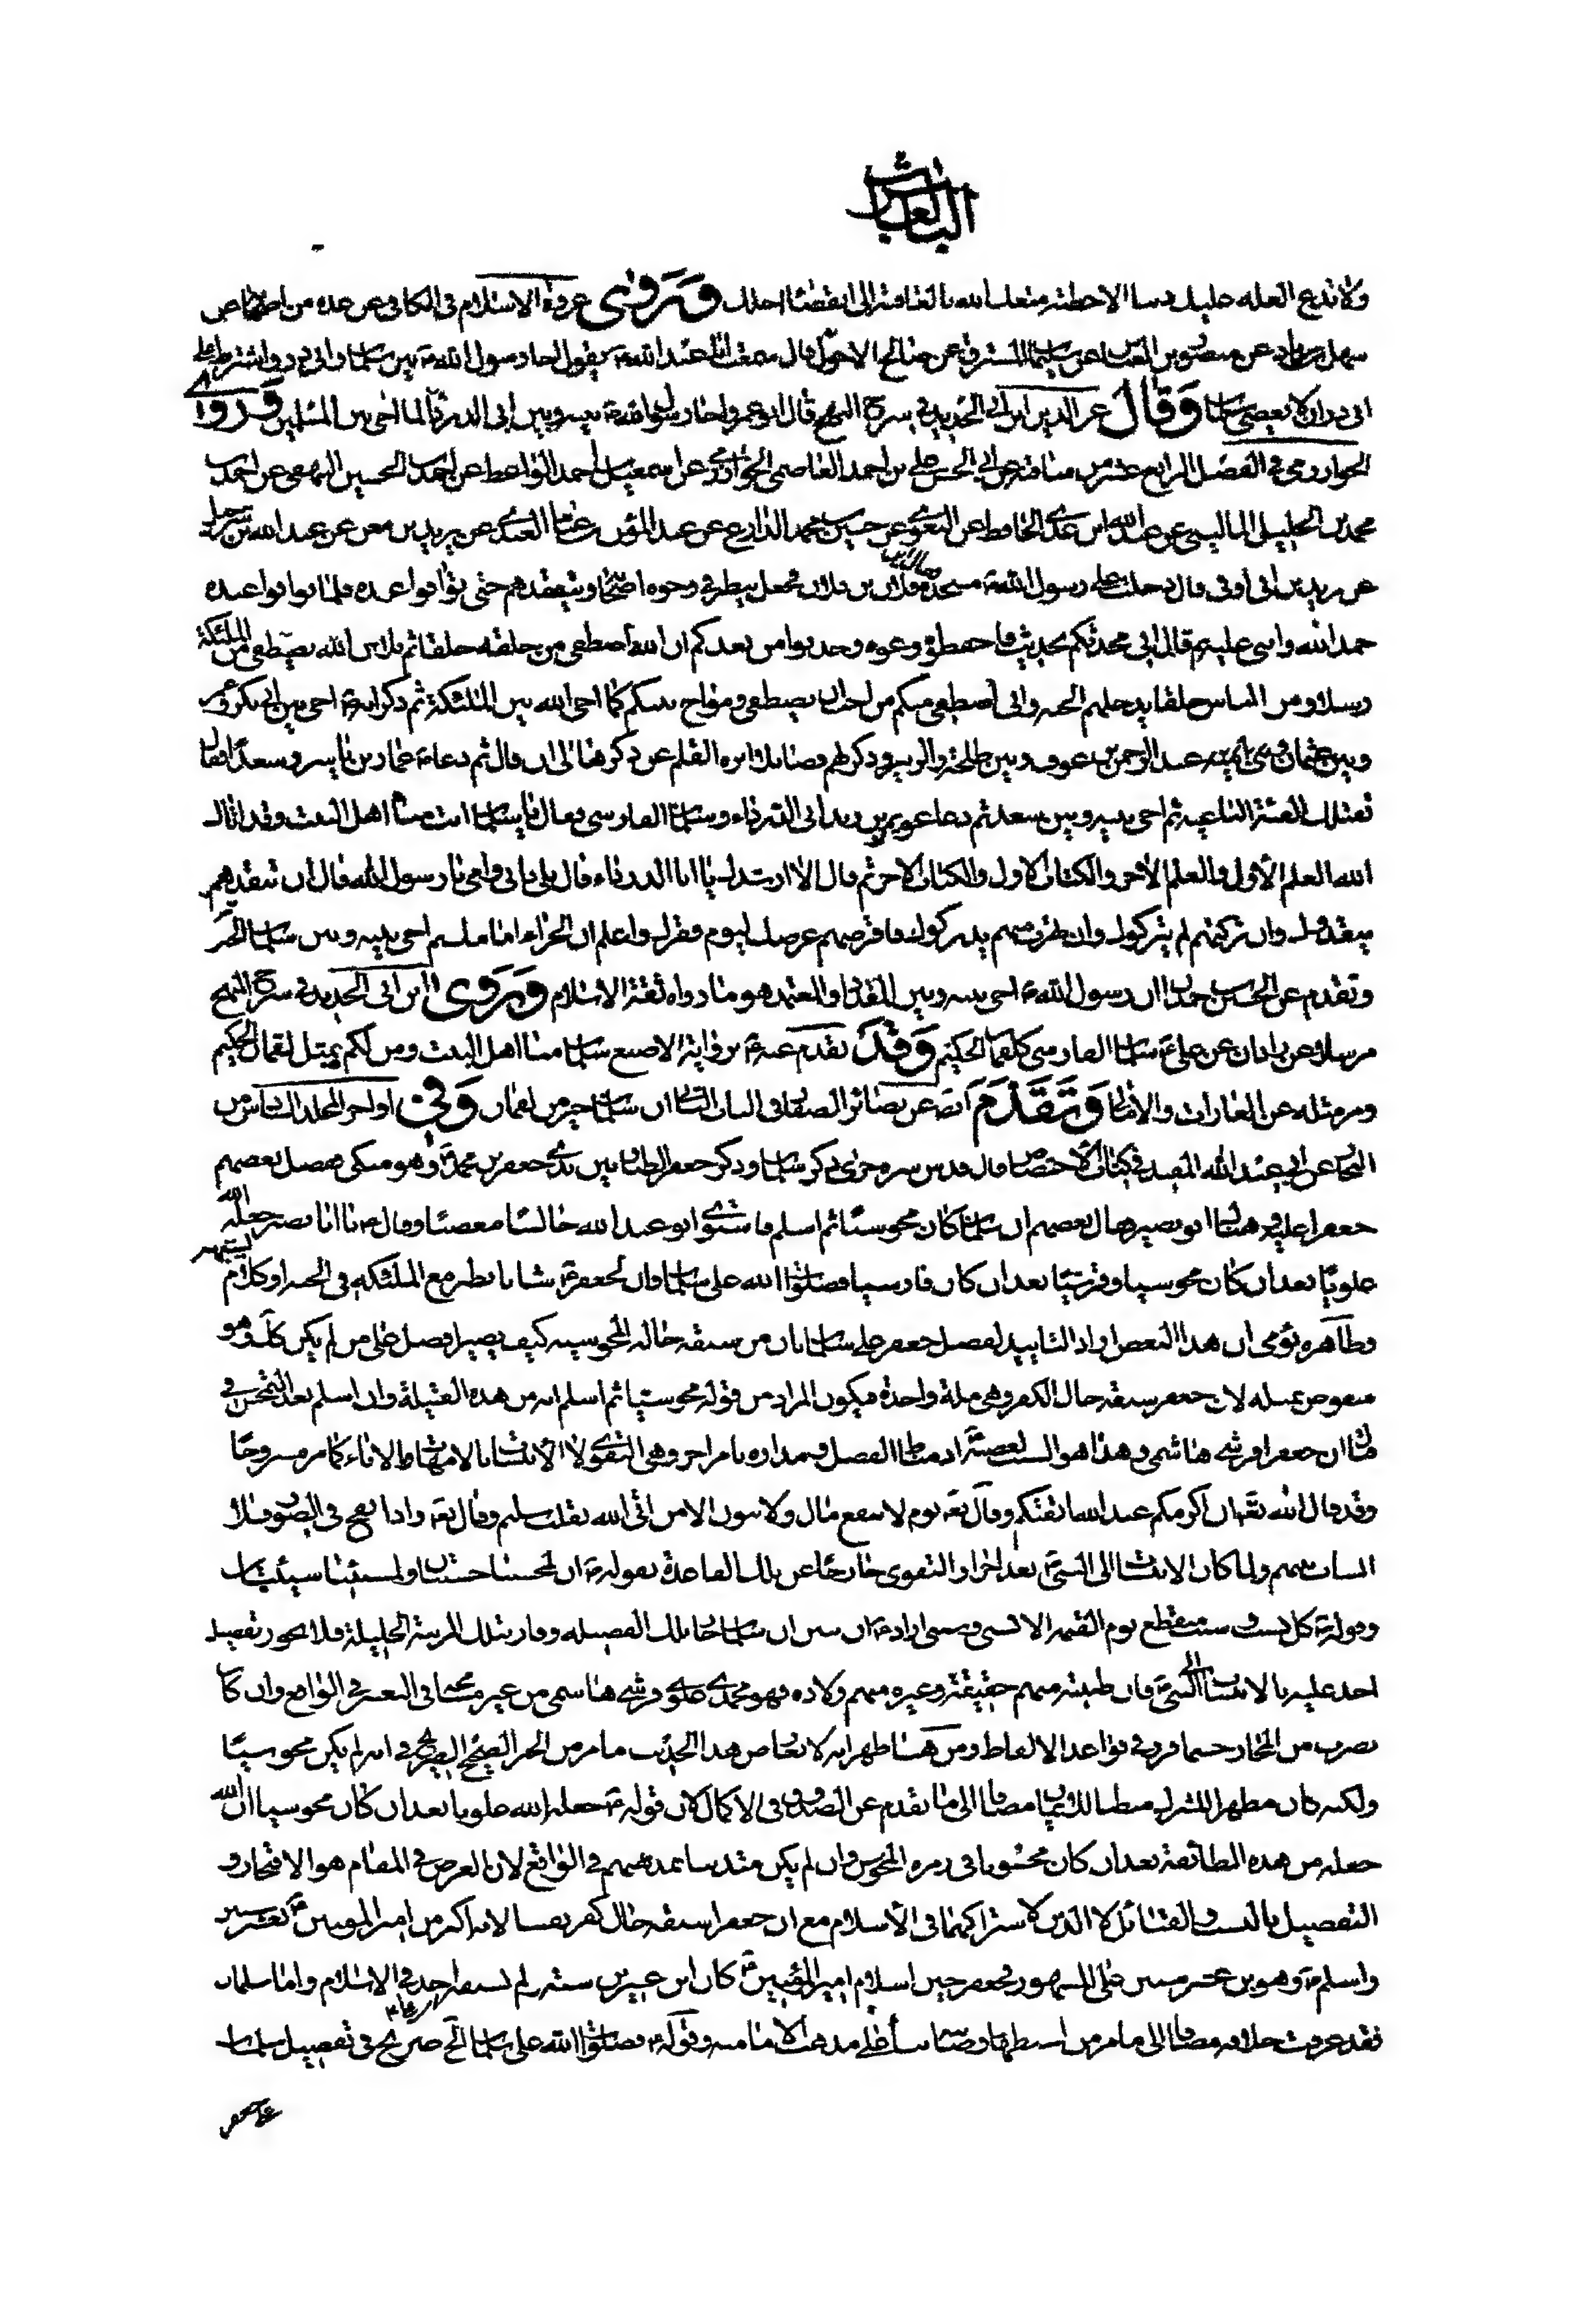 الباب العاشر
ولا تدع العله عليك دنبا الا حطته متعك الله بالعافية الى انقضاء اجلك وروى ثقة الاسلام في الكافي عن عده من اصحابه عن
سهل بن زياد عن منصور بن العباس عن سليمان المسترق عن صالح الاحول قال سمعت ابا عبد الله ع يقول اخا رسول الله ص بين سلمان وابي ذر واشترط على
ابي ذر ان لا يعصي سلمان وقال عز الدين ابن ابي الحديد في شرح النهج قال ابو عمر واخا رسول الله ص بينه وبين ابي الدرداء لما اخى بين المسلمين وروى
الخوارزمي في الفصل الرابع عشر من مناقبه عن ابي الحسن علي بن احمد العاصمي الخوارزمي عن اسمعيل بن احمد الواعظ عن احمد بن الحسين البيهقي عن احمد بن
محمد بن الخليل الماليني عن عبد الله ابن عدي الحافظ عن البغوي عن حسين بن محمد الذارع عن عبد المؤمن بن عباد العبدي عن يزيد بن معن عن عبد الله بن شرحبيل
عن زيد بن ابي اوفى قال دخلت على رسول الله ص مسجده فقال اين فلان بن فلان فجعل ينظر في وجوه اصحابه ويتفقدهم حتى توافوا عنده فلما توافوا عنده
حمد الله واثنى عليه ثم قال اني محدثكم بحديث فاحفظوه وعوه وحدثوا من بعدكم ان الله اصطفى من خلقه خلقا ثم تلا الله يصطفي من الملئكة
رسلا ومن الناس خلقا يدخلهم الجنه واني اصطفي منكم من احب ان يصطفي ومواخ بينكم كما اخى الله بين الملئكة ثم ذكر انه ص اخى بين ابي بكر وعمر
وبين عثمان وعبد الرحمن بن عوف وبين طلحة والزبير وذكر لهم فضائل ان قال ثم دعا ص عمار بن ياسر وسعدا فقال
تقتلك الفئة الباغيه ثم اخى بينه وبين سعد ثم دعا عويمر بن زيد ابي الدرداء وسلمان الفارسي فقال يا سلمان انت منا اهل البيت وقد اتاك
الله العلم الاول والعلم الاخر والكتاب الاول والكتاب الاخر ثم قال الا ارشدك يا ابا الدرداء قال بلى بابي وامي يا رسول الله قال ان تنقدهم
ينقدوك وان تركتهم لم يتركوك وان تهرب منهم يدركوك فاقرضهم عرضك ليوم فقرك واعلم ان الجزاء امامك ثم اخى بينه وبين سلمان الخبر
وتقدم عن الحسين بن حمدان ان رسول الله ص اخى بينه وبين المقداد والمعتمد هو ما رواه ثقة الاسلام وروى ابن ابي الحديد في شرح النهج
مرسلا عن زاذان عن علي ع سلمان الفارسي كلقمان الحكيم وقد تقدم عنه ع برواية الاصبغ سلمان منا اهل البيت ومن لكم بمثل لقمان الحكيم
ومر مثله عن الغارات والامالي وتقدم ايضا عن بصائر الصفار في الباب الثاني ان سلمان خير من لقمان وفي اواخر المجلد السادس من
البحار عن ابي عبد الله المفيد في كتاب الاختصاص قال قدس سره جرى ذكر سلمان وذكر جعفر الطيار بين يدي جعفر بن محمد ع وهو متكي ففضل بعضهم
جعفرا عليه وهناك ابو بصير فقال بعضهم ان سلمان كان مجوسيا ثم اسلم فاستوى ابو عبد الله جالسا مغضبا وقال ع يا ابا بصير جعله الله
علويا بعد ان كان مجوسيا وقرشيا بعد ان كان فارسيا فصلوات الله على سلمان وان لجعفر ع شانا يطير مع الملئكة في الجنه او كلام يشبهه
وظاهره يؤمي ان هذا البعض اراد التاييد لفضل جعفر على سلمان بان من سبقه حاله المجوسيه كيف يصير افضل على من لم يكن كك وهو
منقوض بمثله لان جعفر سبقه حال الكفر وهي ملة واحدة فيكون المراد من قوله مجوسيا ثم اسلم انه من هذه القبيلة وان اسلم بعد التمجس في
قبال ان جعفر قرشي هاشمي وهذا هو السبب لغضبه ع اذ مناط الفضل ومداره بامر اخر وهي التقوى لا الانتساب بالامهات والاباء كما مر مشروحا
وقد قال الله تعالى ان اكرمكم عند الله اتقيكم وقال تعه يوم لا ينفع مال ولا بنون الا من اتى الله بقلب سليم وقال تعه واذا نفخ في الصور فلا
انساب بينهم ولما كان الانتساب الى النبي ص بعد احراز التقوى خارجا عن تلك القاعدة بقوله ع ان لمحسننا حسنتان ولمسيئنا سيئتان
وقوله ص كل حسب ونسب منقطع يوم القيمه الا حسبي ونسبي اراد ع ان يبين ان سلمان حاز تلك الفضيله وفاز بتلك المرتبة الجليلة فلا يجوز تفضيل
احد عليه بالانتساب الى النبي ص فان طينته منهم حقيقة وغيره منهم ولادة فهو محمدي علوي قرشي هاشمي من غير في الواقع وان كان
بضرب من المجاز حسبما قرر في قواعد الالفاظ ومن هنا ظهر انه لا يعارض هذا الحديث ما مر من الخبر الصحيح الصريح في انه لم يكن مجوسيا
ولكنه كان مظهرا للشرك مبطنا للايمان مضافا الى ما تقدم عن الصدوق في الاكمال لان قوله ع جعله الله علويا بعد ان كان مجوسيا ان الله
جعله من هذه الطائفة بعد ان كان محسوبا في زمره المجوس وان لم يكن متدينا بمذهبهم في الواقع لان الغرض في المقام هو الافتخار و
التفضيل بالنسب والقبائل لا الدين لاشتراكهما في الاسلام مع ان جعفرا سبقه حال كفر بفسا لانه اكبر من امير المؤمنين ع بعشر سنين
واسلم ع وهو بن عشر سنين على المشهور فجعفر حين اسلام امير المؤمنين ع كان ابن عشرين سنه ولم يسبقه احد في الاسلام واما سلمان
فقد عرفت خلافه مضافا الى ما مر من على مذهب الامامية وقوله ع فصلوات الله على سلمان الخ صريح في تفضيل سلمان
على جعفر